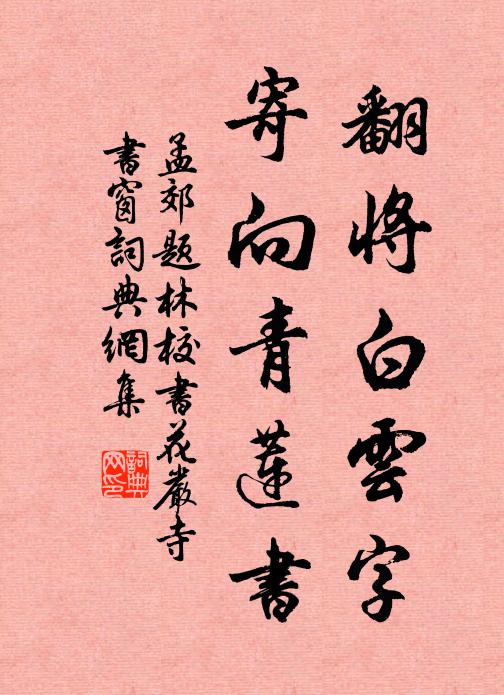 翻將白雲字
寄向青蓮書
孟郊題林校書花嚴寺
書窗詞典網集
詞典網印